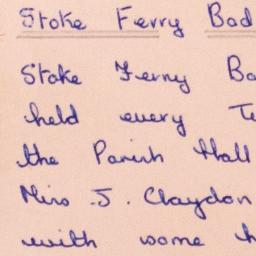 Stoke Ferry Bad
Stoke Ferry Ba
held every Te
the Parish Hall
Miss J. Claydon
with some h